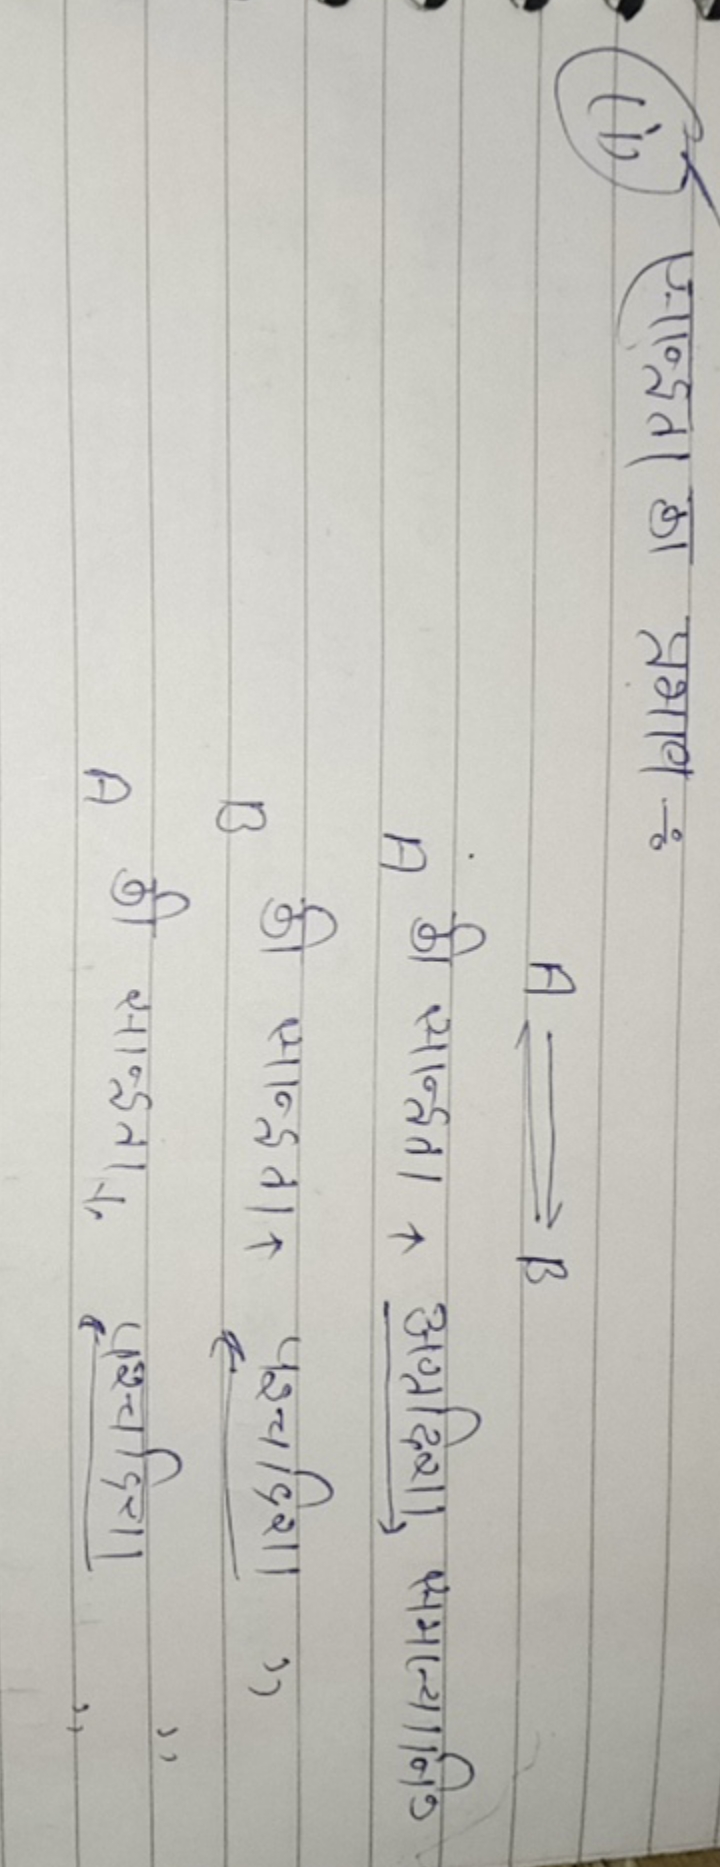 (ii) सान्द्रता का प्रभाव ÷
A ⇌ B
A की सान्द्रता ↑ अग्रदिशा समान्यानि
B की सान्द्रता ↑ पश्चदिशा ,,
A की सान्द्रता ↓ पश्चदिशा ,, ,,